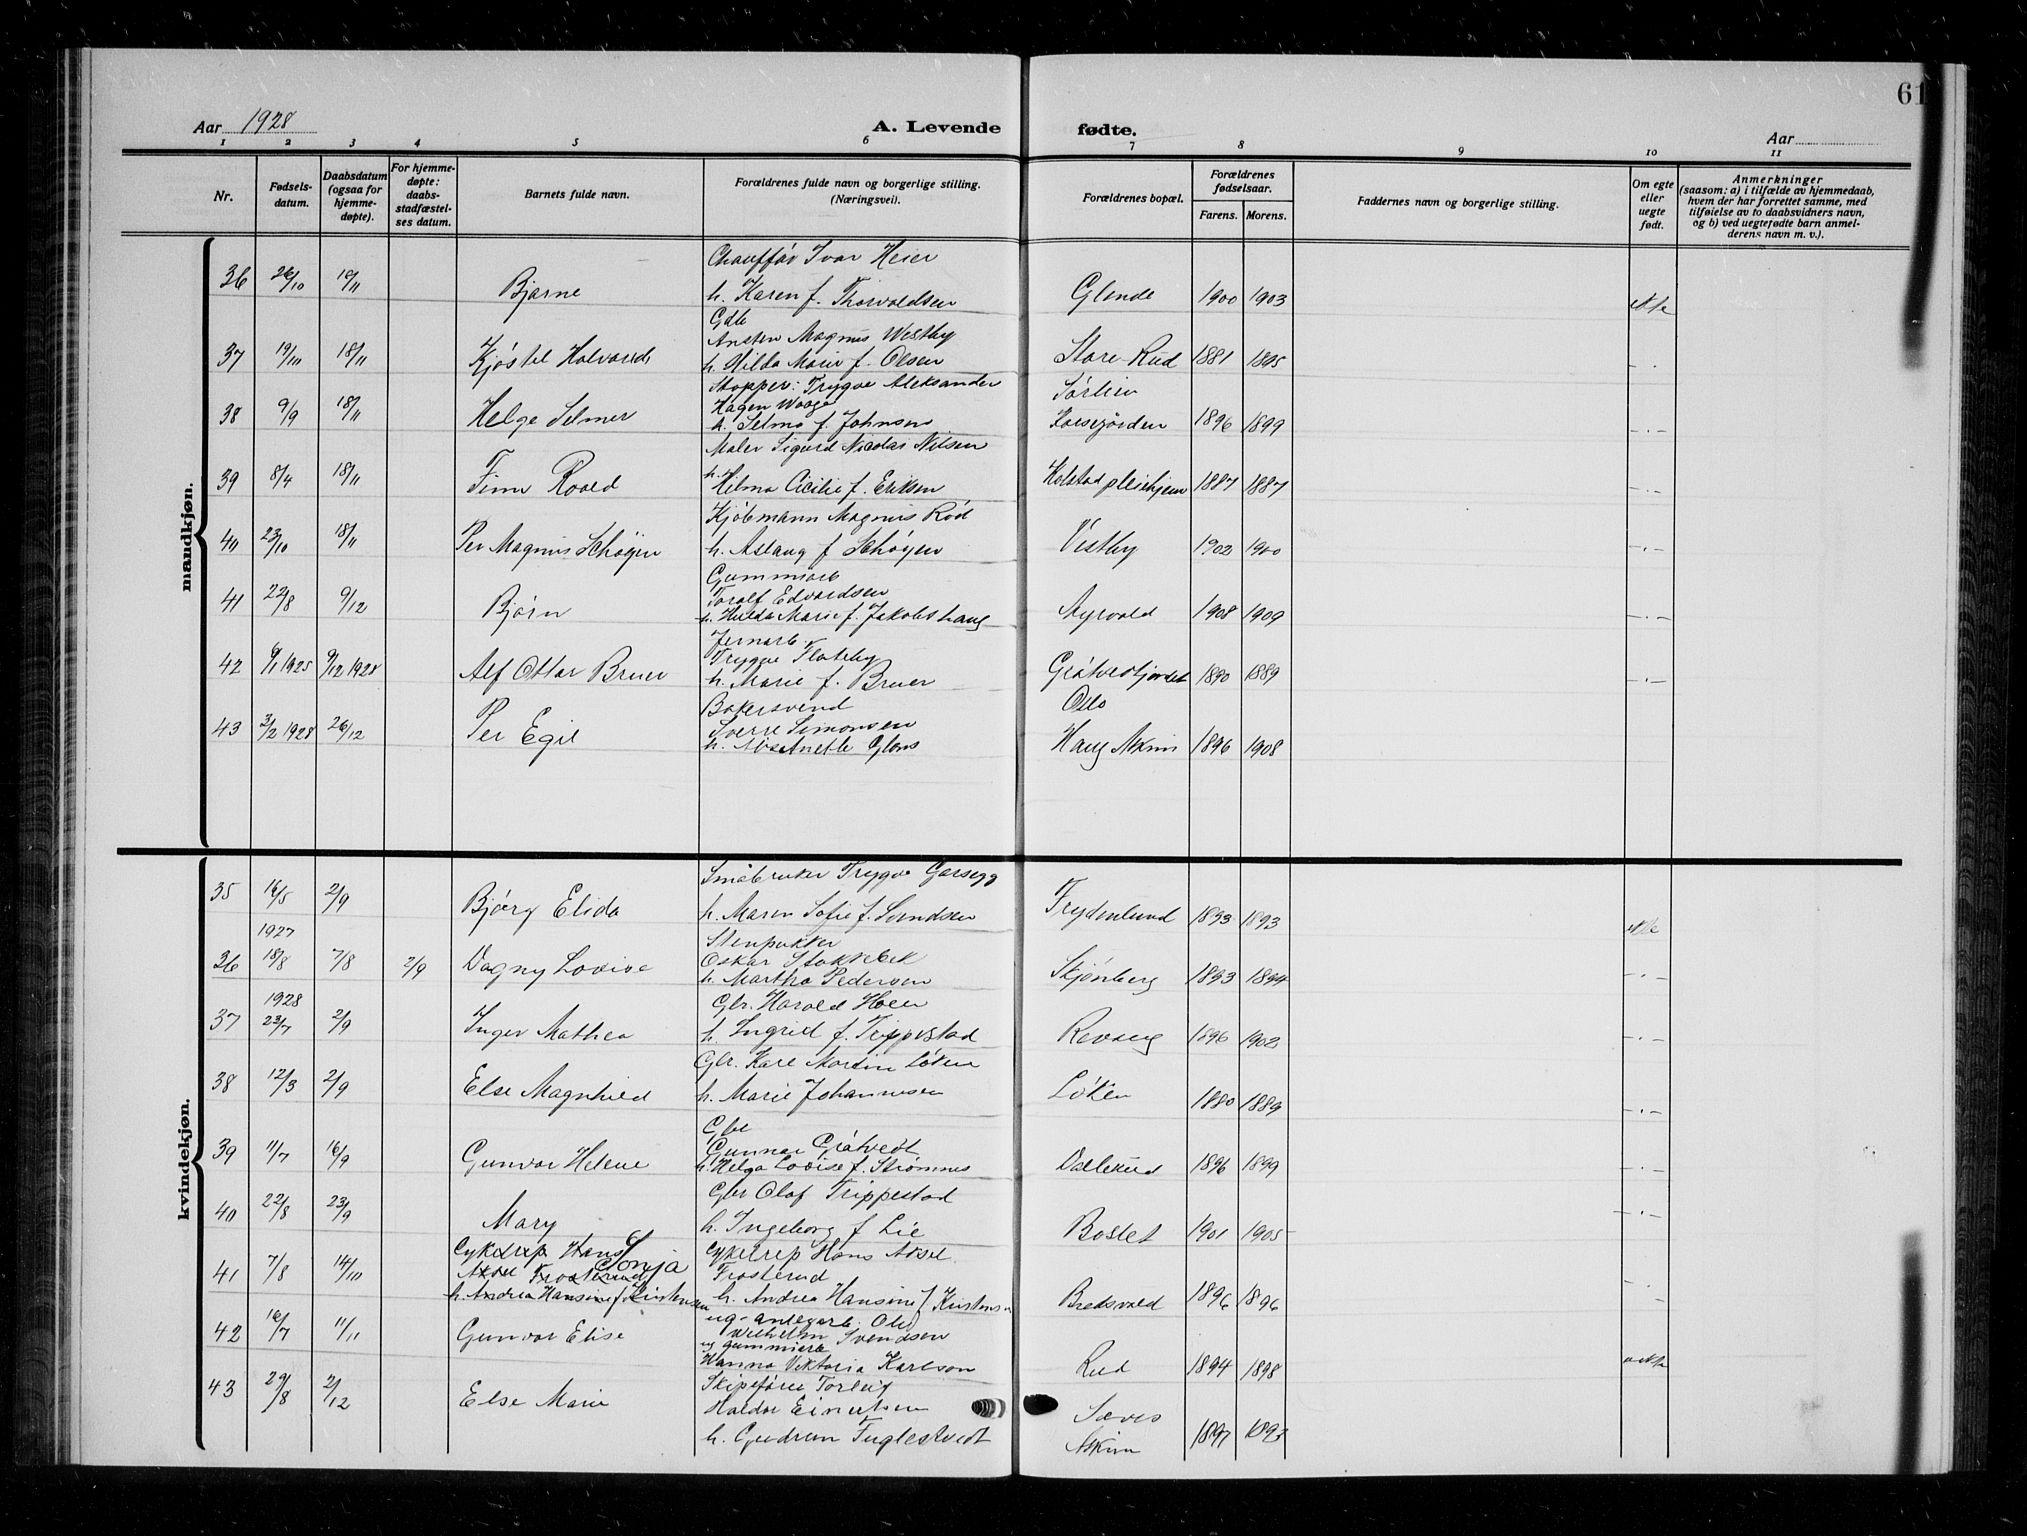 61
Aar 1928
A. Levende fødte.
Aar
1 2 3 4 5 6 7 8 9 10 11
Nr.
Fødsels-
datum.
Daabsdatum
(ogsaa for
hjemme-
døpte).
For hjemme-
døpte:
daabs-
stadfæstel-
ses datum.
Barnets fulde navn.
Forældrenes fulde navn og borgerlige stilling.
(Næringsvei).
Forældrenes bopæl.
Forældrenes
fødselsaar.
Farens. Morens.
Faddernes navn og borgerlige stilling.
Om egte
eller
uegte
født.
Anmerkninger
(saasom: a) i tilfælde av hjemmedaab,
hvem der har forrettet samme, med
tilføielse av to daabsvidners navn,
og b) ved uegtefødte barn anmel-
derens navn m. v.).
mandkjøn.
Chauffør Ivar Heier
36 26/10 18/11 Bjarne h. Karen f. Thorvaldsen Glende 1900 1903 ekte
Gdb
Ansten Magnus Westby
37 19/10 18/11 Kjøstel Halvard h. Hilda Marie f. Olsen Store Rud 1881 1895 - . -
Stopper: Trygve Aleksander Sørlien
Hagen Waage
38 9/9 18/11 Helge Selmer h. Selma f. Johnsen Korsegården 1896 1899 - . -
Maler Sigurd Nicolai Nilsen
39 8/4 18/11 Finn Roald h. Hilma Cicilie f. Eriksen Holstad pleiehjem 1887 1887 - . -
Kjøbmann Magnus Rød
40 23/10 18/11 Per Magnus Schøyen h. Aslaug f Schøyen Vestby 1902 1900 - . -
Gummiarb
Toralf Edvardsen
41 22/8 9/12 Bjørn h. Hulda Marie f. Jakobshaug Myrvold 1908 1909 - . -
Jernarb.
Trygve Flateby
42 9/1 1925 9/12 1928 Alf Ottar Bruer h. Marie f. Bruer Grøtvedtjordet 1890 1889 - . -
Bakersvend Oslo
Sverre Simonsen
43 3/2 1928 26/12 Per Egil h. Aase Anette Glans Haug Askim 1896 1908
kvindekjøn.
Småbruker Trygve Garsegg
35 16/5 2/9 Bjørg Elida h. Maren Sofie f. Svendsen Frydenlund 1893 1893 ekte
1927
Stenpukker
Oskar Stokkbek
36 18/8 7/8 2/9 Dagny Lovise h. Martha Pedersen Skjønberg 1893 1894 - . -
1928
Gbr. Harald Hoen
37 23/7 2/9 Inger Mathea h. Ingrid f. Trippestad Revaug 1896 1902 - . -
Gbr. Karl Martin Løken
38 12/3 2/9 Else Magnhild h. Marie Johannesen Løken 1880 1889 - . -
Gbr
Gunnar Grøtvedt
39 11/7 16/9 Gunvor Helene h. Helga Lovise f. Strømnes Dalerud 1896 1899 - . -
Gbr Olaf Trippestad
40 22/8 23/9 Mary h. Ingeborg f Lie Baslet 1901 1905 - . -
Cykelrep Hans Sonja Cykelrep Hans Aksel
41 7/8 14/10 Aksel Frosterud Frosterud
h. Andrea Hansine f Kristensen h. Andrea Hansine f Kristensen Bredsvold 1896 1896 - . -
ug. anlegarb. Ole
Wilhelm Svendsen
42 16/7 11/11 Gunvor Elise og gummiarb
Hanna Viktoria Karlson Rud 1894 1898 uekte
43 29/8 2/12 Else Marie Skipsfører Torleif
Haldor Einertsen Saves
h. Gudrun Fuglestvedt Askim 1897 1893